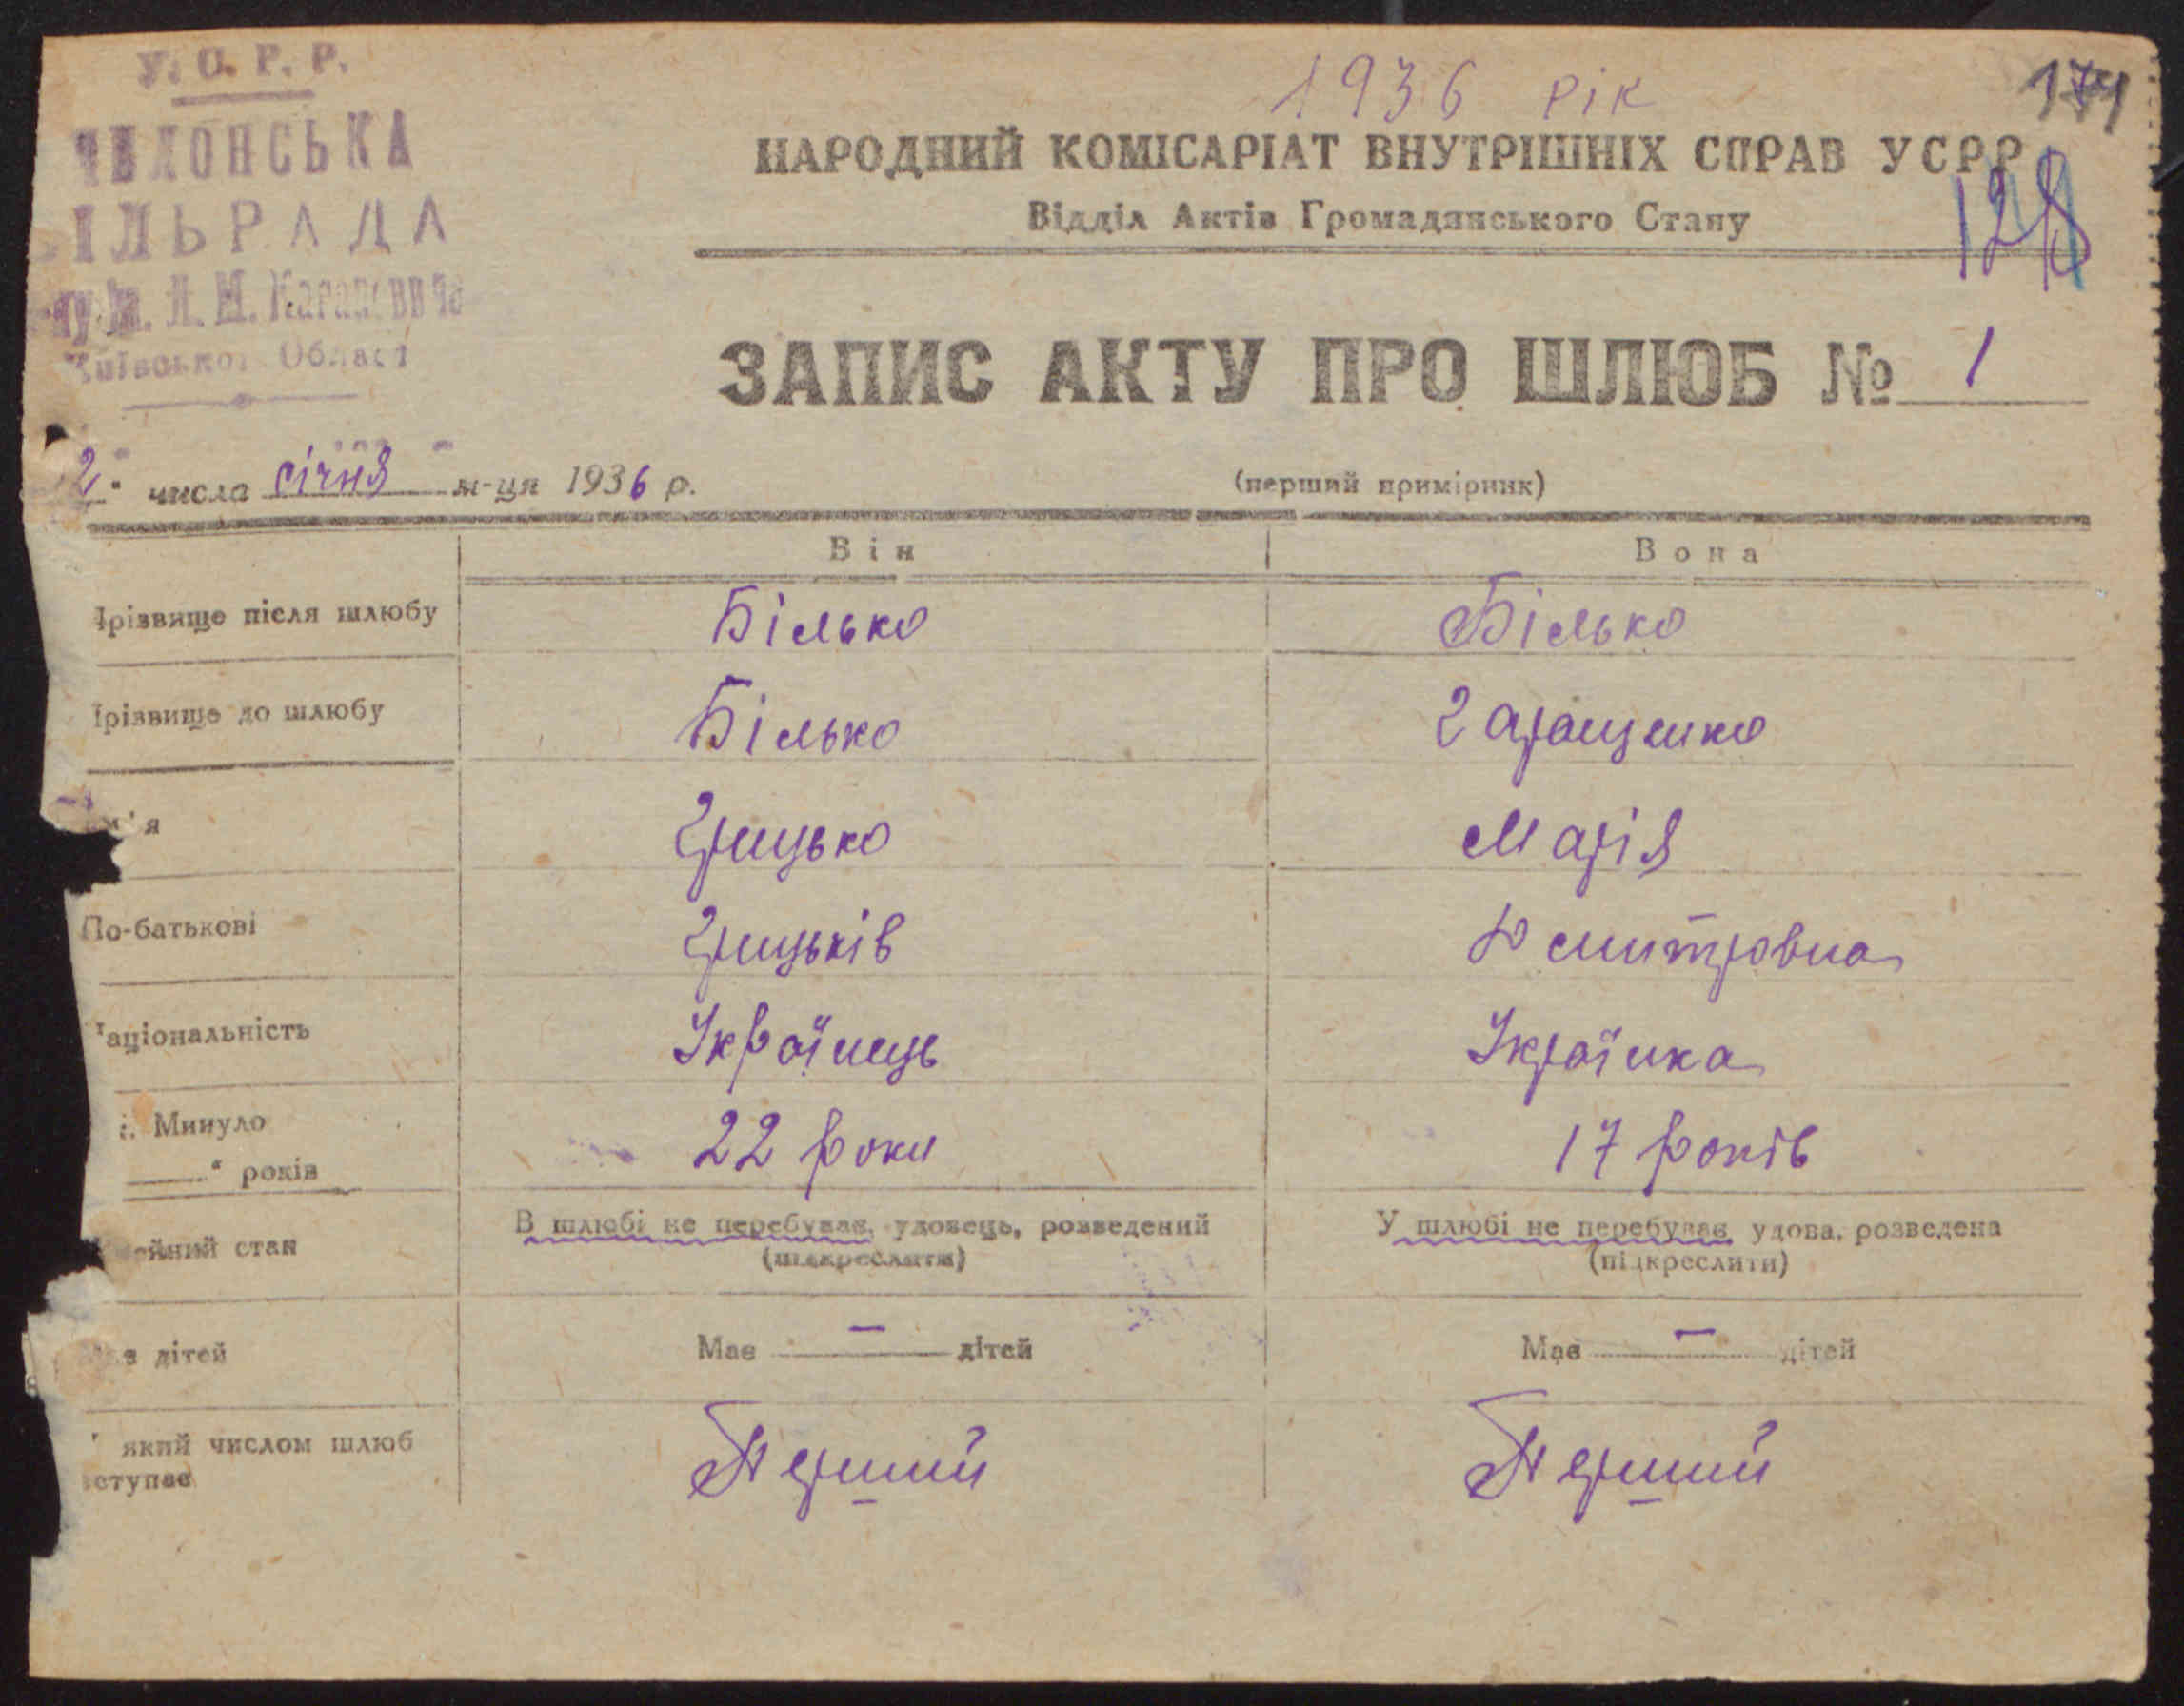 У. С. Р. Р.
ІЛЬРАДА
Київської Області
1936 рік
НАРОДНИЙ КОМІСАРІАТ ВНУТРІШНІХ СПРАВ УСРР
Відділ Актів Громадянського Стану
128
ЗАПИС АКТУ ПРО ШЛЮБ № 1
2" числа січня м-ця 1936 р.
(перший примірник)
Він Вона
Прізвище після шлюбу Білько Білько
Прізвище до шлюбу Білько Гаращенко
м'я Грицько Марія
По-батькові Грицьків Дмитровна
Національність Українець Українка
Минуло 22 роки 17 років
" років
ейний стан В шлюбі не перебував, удовець, розведений У шлюбі не перебував, удова, розведена
(підкреслити) (підкреслити)
дітей Має — дітей Має — дітей
який числом шлюб Перший Перший
вступає